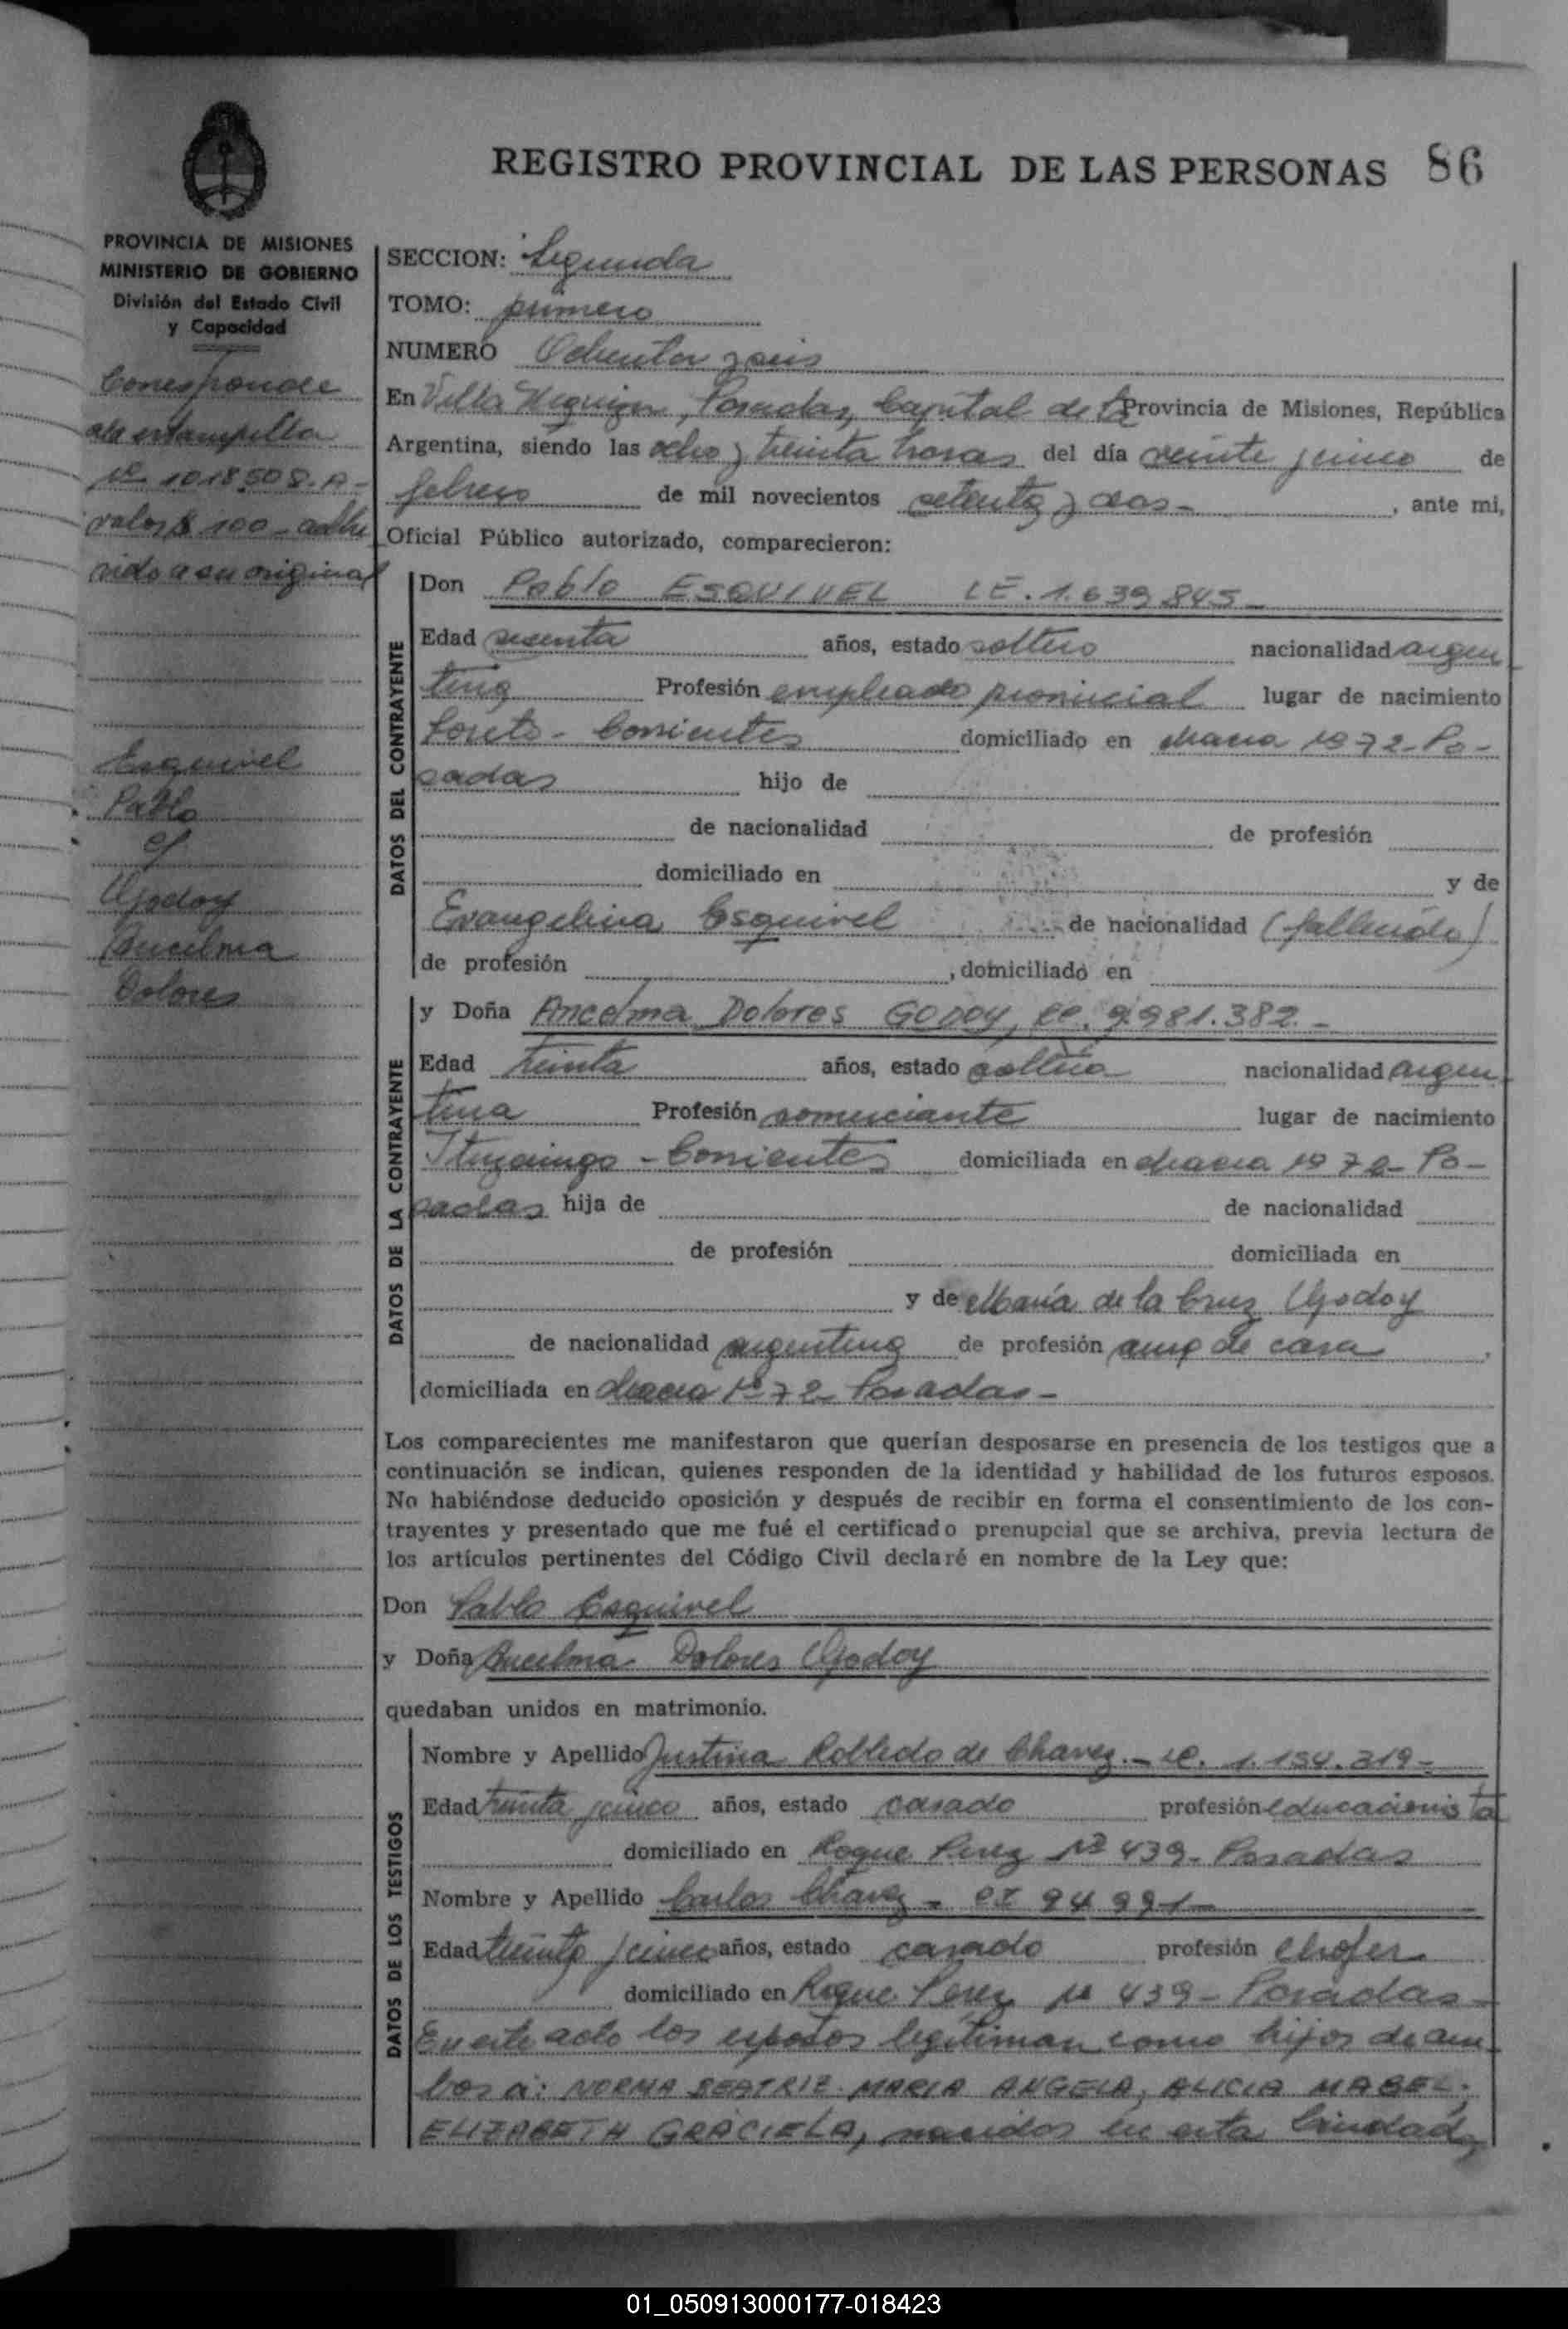 REGISTRO PROVINCIAL DE LAS PERSONAS 86
PROVINCIA DE MISIONES
MINISTERIO DE GOBIERNO
División del Estado Civil
y Capacidad
Corresponde
a la estampilla
Nº 1018508.A-
valor $ 100- adhe
rida a su original
Esquivel
Pablo
c/
Godoy
Ancelma
Dolores
SECCION: Segunda
TOMO: primero
NUMERO Ochenta y seis
En Villa Urquiza, Posadas, Capital de la Provincia de Misiones, República
Argentina, siendo las ocho y treinta horas del día veinte y cinco de
febrero de mil novecientos setenta y dos- , ante mi,
Oficial Público autorizado, comparecieron:
DATOS DEL CONTRAYENTE
Don Pablo ESQUIVEL LE. 1.639.845-
Edad sesenta años, estado soltero nacionalidad argen
tina Profesión empleado provincial lugar de nacimiento
Loreto - Corrientes domiciliado en chacra 1972- Po-
sadas hijo de
de nacionalidad de profesión
domiciliado en y de
Evangelina Esquivel de nacionalidad (fallecida)
de profesión , domiciliado en
DATOS DE LA CONTRAYENTE
y Doña Ancelma Dolores GODOY, LC. 9.981.382.-
Edad treinta años, estado soltera nacionalidad argen
tina Profesión comerciante lugar de nacimiento
Ituzaingo - Corrientes domiciliada en chacra 1972- Po-
sadas hija de de nacionalidad
de profesión domiciliada en
y de María de la Cruz Godoy
de nacionalidad argentina de profesión ama de casa ,
domiciliada en chacra Nº 72- Posadas-
Los comparecientes me manifestaron que querían desposarse en presencia de los testigos que a
continuación se indican, quienes responden de la identidad y habilidad de los futuros esposos.
No habiéndose deducido oposición y después de recibir en forma el consentimiento de los con-
trayentes y presentado que me fué el certificado prenupcial que se archiva, previa lectura de
los artículos pertinentes del Código Civil declaré en nombre de la Ley que:
Don Pablo Esquivel
y Doña Ancelma Dolores Godoy
quedaban unidos en matrimonio.
DATOS DE LOS TESTIGOS
Nombre y Apellido Justina Robledo de Chavez.- LC. 1.154.319-
Edad treinta y cinco años, estado casado profesión educacionista
domiciliado en Roque Perez Nº 439- Posadas
Nombre y Apellido Carlos Chavez - CI 94 991-
Edad treinta y cinco años, estado casado profesión chofer
domiciliado en Roque Perez Nº 439- Posadas-
En este acto los esposos legitiman como hijos de am
bos a: NORMA BEATRIZ. MARIA ANGELA, ALICIA MABEL.
ELIZABETH GRACIELA, nacidos en esta Ciudad,
01_050913000177-018423